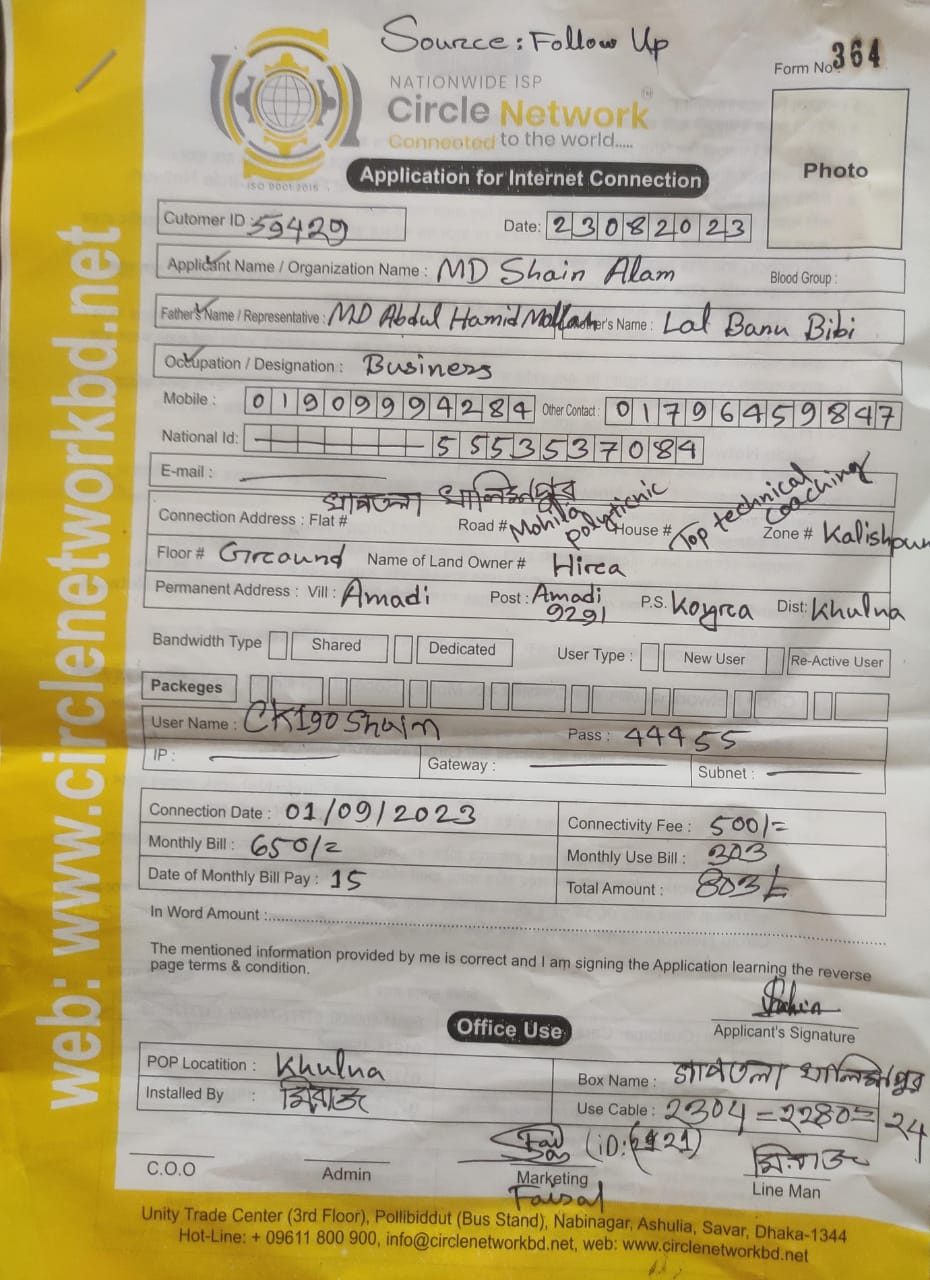 Source: Follow Up
Form No 364
NATIONWIDE ISP
Circle Network
Connected to the world.....
ISO 9001:2015
Application for Internet Connection
Photo
Cutomer ID : 59429
Date: 23082023
Applicant Name / Organization Name : MD Shain Alam
Blood Group :
Father's Name / Representative : MD Abdul Hamid Mollah
Name : Lal Banu Bibi
Occupation / Designation : Business
Mobile : 01909994284 Other Contact : 01796459847
National Id: 5553537084
E-mail :
খালিশপুর
Connection Address : Flat # Road # Mohila polyticnic House # Top technical coaching Zone # Kalishpur
Floor # Grcound Name of Land Owner # Hirca
Permanent Address : Vill : Amadi Post : Amadi 9291 P.S. Koyrca Dist: Khulna
Bandwidth Type Shared Dedicated User Type : New User Re-Active User
Packeges
User Name : CK190Shain Pass : 44455
IP : Gateway : Subnet :
Connection Date : 01/09/2023 Connectivity Fee : 500/=
Monthly Bill : 650/= Monthly Use Bill : 303
Date of Monthly Bill Pay : 15 Total Amount : 803/-
In Word Amount :
The mentioned information provided by me is correct and I am signing the Application learning the reverse
page terms & condition.
Applicant's Signature
Office Use
POP Locatition : Khulna Box Name : খালিশপুর
Installed By : মিরাজ Use Cable : 2304 = 2280 = 24
C.O.O Admin Marketing Line Man
Faisal
Unity Trade Center (3rd Floor), Pollibiddut (Bus Stand), Nabinagar, Ashulia, Savar, Dhaka-1344
Hot-Line: + 09611 800 900, info@circlenetworkbd.net, web: www.circlenetworkbd.net
web: www.circlenetworkbd.net